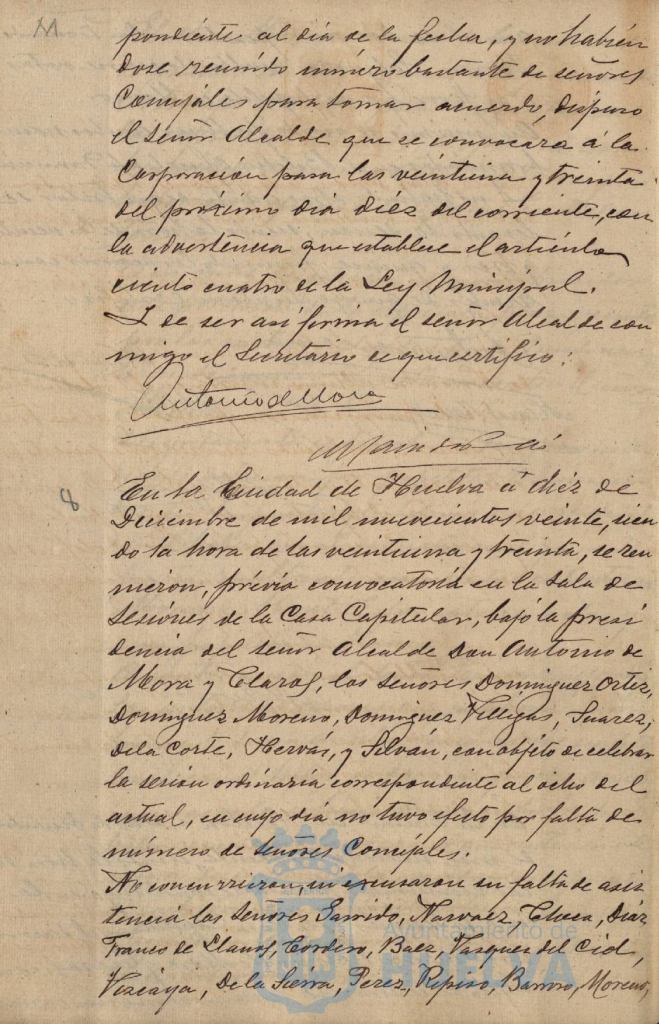 pondiente al dia de la fecha, y no habien
dose reunido número bastante de señores
Concejales para tomar acuerdo, dispuso
el señor Alcalde que se convocara á la
Corporación para las veintiuna y treinta
del próximo dia diez del corriente, con
la advertencia que establece el artículo
ciento cuatro de la Ley Municipal.
Y de ser asi firma el señor Alcalde con
migo el Secretario de que certifico:
Antonio de Mora
8
En la Ciudad de Huelva á diez de
Diciembre de mil novecientos veinte, sien
do la hora de las veintiuna y treinta, se reu
nieron, prévia convocatoria en la Sala de
Sesiones de la Casa Capitular, bajo la presi
dencia del señor Alcalde Don Antonio de
Mora y Claros, los señores Dominguez Ortiz,
Dominguez Moreno, Dominguez Villegas, Suarez,
de la Corte, Hervás, y Silván, con objeto de celebrar
la sesión ordinaria correspondiente al ocho del
actual, en cuyo dia no tuvo efecto por falta de
número de señores Concejales.
No concurrieron, ni excusaron su falta de asis
tencia los señores Garrido, Narvaez, Checa, Diaz
Franco de Llanos, Cordero, Baez, Vasquez del Cid,
Vizcaya, De la Sierra, Perez, Repiso, Barroso, Moreno,
Ayuntamiento de
HUELVA